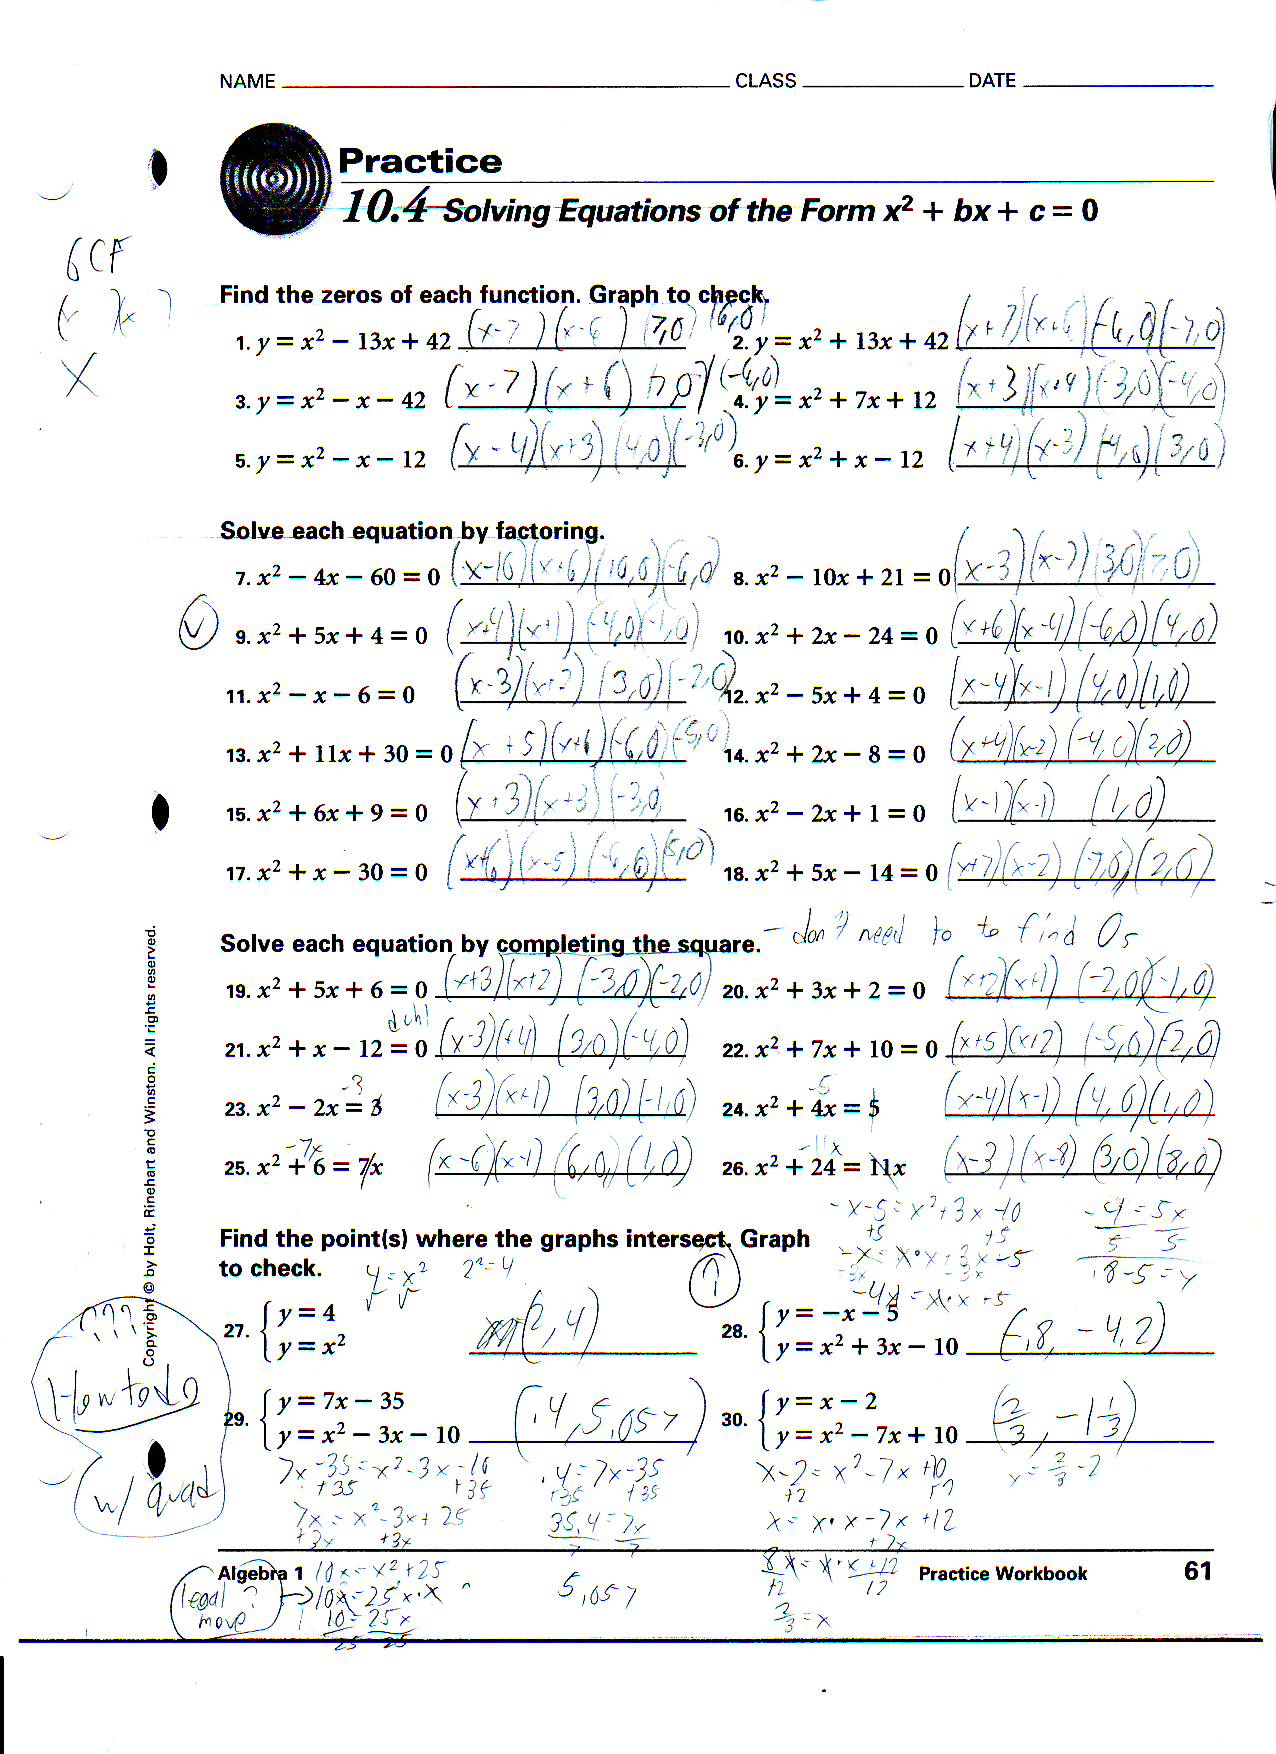 NAME CLASS DATE
Practice
10.4 Solving Equations of the Form x² + bx + c = 0
GCF
Find the zeros of each function. Graph to check.
1. y = x² − 13x + 42 (x-7)(x-6) (7,0) (6,0)
2. y = x² + 13x + 42 (x+7)(x+6) (-6,0)(-7,0)
3. y = x² − x − 42 (x-7)(x+6) (7,0) (-6,0)
4. y = x² + 7x + 12 (x+3)(x+4)(-3,0)(-4,0)
5. y = x² − x − 12 (x-4)(x+3)(4,0)(-3,0)
6. y = x² + x − 12 (x+4)(x-3)(-4,0)(3,0)
Solve each equation by factoring.
7. x² − 4x − 60 = 0 (x-10)(x+6)(10,0)(-6,0)
8. x² − 10x + 21 = 0 (x-3)(x-7)(3,0)(7,0)
9. x² + 5x + 4 = 0 (x+4)(x+1)(-4,0)(-1,0)
10. x² + 2x − 24 = 0 (x+6)(x-4)(-6,0)(4,0)
11. x² − x − 6 = 0 (x-3)(x+2)(3,0)(-2,0)
12. x² − 5x + 4 = 0 (x-4)(x-1)(4,0)(1,0)
13. x² + 11x + 30 = 0 (x+5)(x+6)(-6,0)(-5,0)
14. x² + 2x − 8 = 0 (x+4)(x-2)(-4,0)(2,0)
15. x² + 6x + 9 = 0 (x+3)(x+3)(-3,0)
16. x² − 2x + 1 = 0 (x-1)(x-1) (1,0)
17. x² + x − 30 = 0 (x+6)(x-5)(-6,0)(5,0)
18. x² + 5x − 14 = 0 (x+7)(x-2) (7,0)(2,0)
Solve each equation by completing the square. - don't need to to find 0s
19. x² + 5x + 6 = 0 (x+3)(x+2) (-3,0)(-2,0)
20. x² + 3x + 2 = 0 (x+2)(x+1) (-2,0)(-1,0)
duh!
21. x² + x − 12 = 0 (x-3)(+4) (3,0)(-4,0)
22. x² + 7x + 10 = 0 (x+5)(x+2) (-5,0)(2,0)
-3
-5
23. x² − 2x = 3 (x-3)(x+1) (3,0)(-1,0)
24. x² + 4x = 5 (x-4)(x-1) (4,0)(1,0)
-7x
-11x
25. x² + 6 = 7x (x-6)(x-1) (6,0)(1,0)
26. x² + 24 = 11x (x-3)(x-8) (3,0)(8,0)
-x-5=x²+3x-10
+5 +5
-x=x·x+3x-5
-3x -3x
-4x=x·x-5
-4=5x
5 5
.8-5=y
Find the point(s) where the graphs intersect. Graph
to check.
y=x² 2²=4
27. y = 4
y = x² (2,4)
28. y = −x − 5
y = x² + 3x − 10 (-.8, -4,2)
29. y = 7x − 35
y = x² − 3x − 10 (.4,5.057)
30. y = x − 2
y = x² − 7x + 10 (2/3, -1 1/3)
How to do
w/ quad
7x-35=x²-3x-10
+35 +35
7x=x²-3x+25
+3x +3x
10x=x²+25
10x=25x·x
10=25x
25 25
.4=7x-35
+35 +35
35.4=7x
7 7
5.057
x-2=x²-7x+10
+2 +2
x=x·x-7x+12
+7x
8x=x·x+12
12
2/3=x
y=2/3-2
legal ?
move
Copyright © by Holt, Rinehart and Winston. All rights reserved.
Algebra 1 Practice Workbook 61